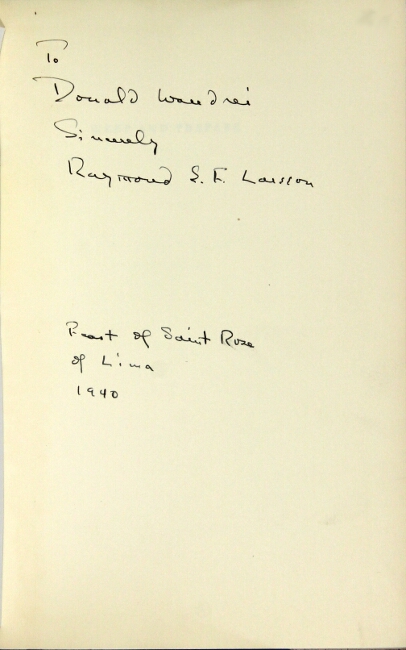 To
Donald Wandrei
Sincerely
Raymond E. F. Larsson
Feast of Saint Rose
of Lima
1940